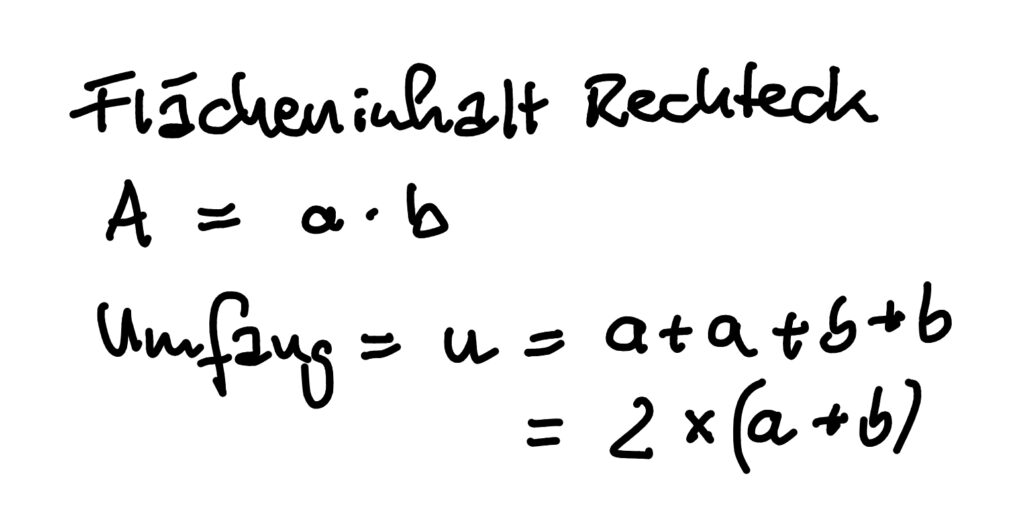 Flächeninhalt Rechteck
A = a · b
Umfang = u = a + a + b + b
= 2 × (a + b)